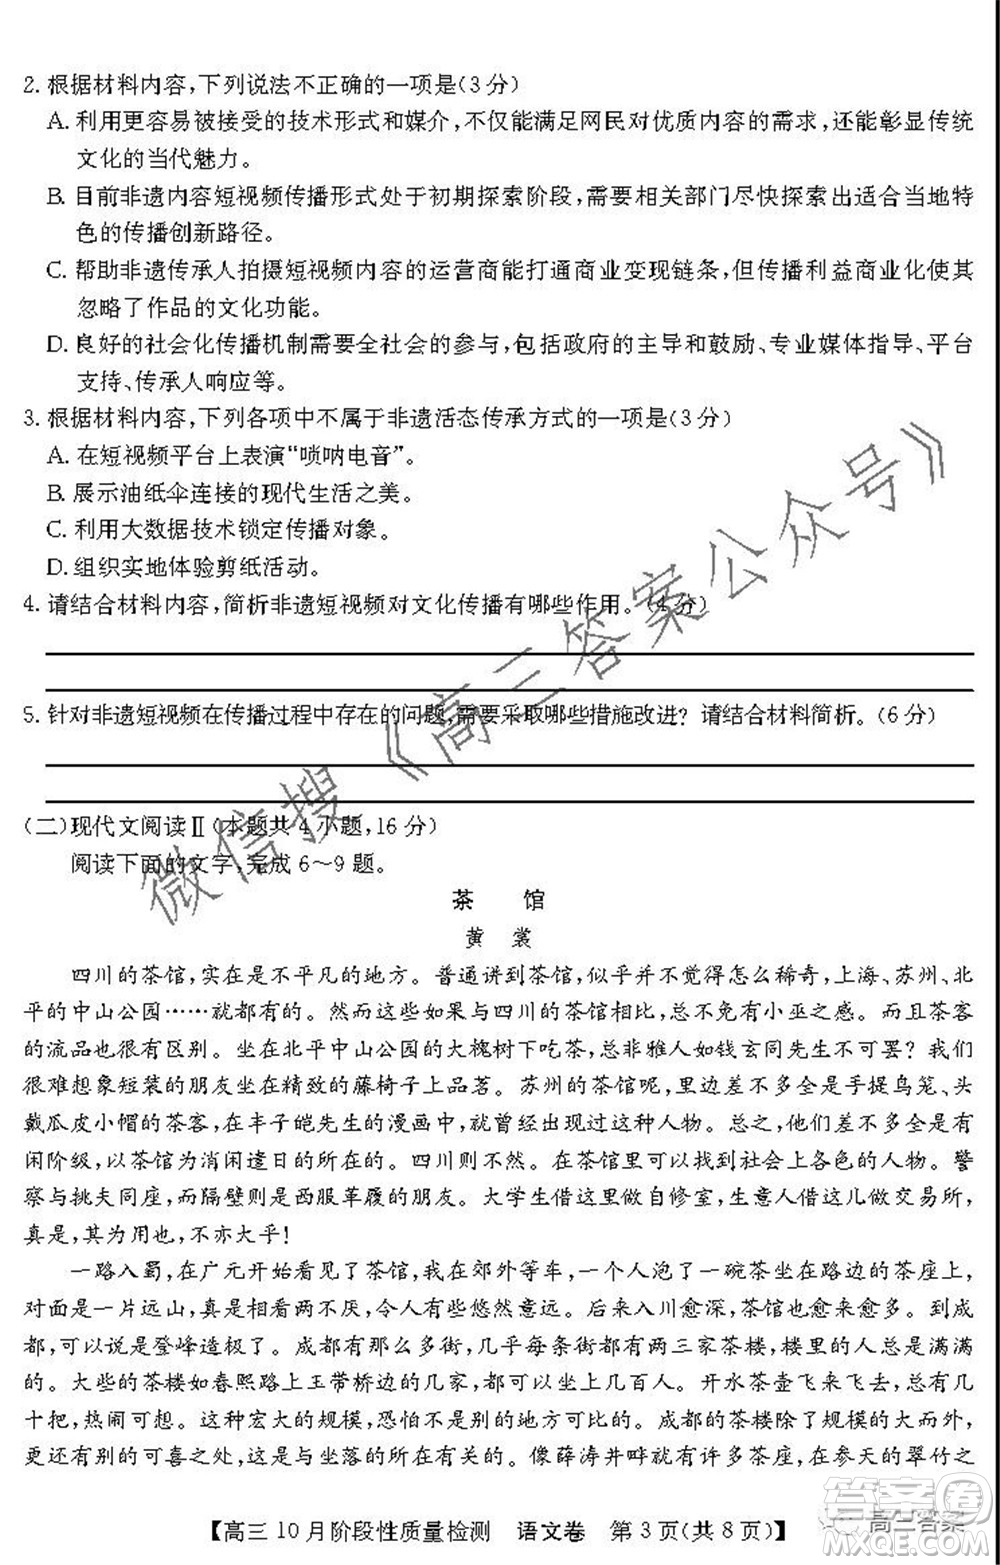 2. 根据材料内容,下列说法不正确的一项是(3分)
A. 利用更容易被接受的技术形式和媒介,不仅能满足网民对优质内容的需求,还能彰显传统
文化的当代魅力。
B. 目前非遗内容短视频传播形式处于初期探索阶段,需要相关部门尽快探索出适合地域特
色的传播创新路径。
C. 帮助非遗传承人拍摄短视频内容的运营商能打通商业变现链条,但传播利益商业化使其
忽略了作品的文化功能。
D. 良好的社会化传播机制需要全社会的参与,包括政府的主导和鼓励、专业媒体指导、平台
支持、传承人响应等。
3. 根据材料内容,下列各项中不属于非遗活态传承方式的一项是(3分)
A. 在短视频平台上表演“唢呐电音”。
B. 展示油纸伞连接的现代生活之美。
C. 利用大数据技术锁定传播对象。
D. 组织实地体验剪纸活动。
4. 请结合材料内容,简析非遗短视频对文化传播有哪些作用。(4分)
5. 针对非遗短视频在传播过程中存在的问题,需要采取哪些措施改进?请结合材料简析。(6分)
(二)现代文阅读Ⅱ(本题共4小题,16分)
阅读下面的文字,完成6~9题。
茶 馆
黄 裳
四川的茶馆,实在是不平凡的地方。普通讲到茶馆,似乎并不觉得怎么稀奇,上海、苏州、北
平的中山公园……就都有的。然而这些如果与四川的茶馆相比,总不免有小巫之感。而且茶客
的流品也很有区别。坐在北平中山公园的大槐树下吃茶,总非雅人如钱玄同先生不可罢?我们
很难想象短装的朋友坐在精致的藤椅子上品茗。苏州的茶馆呢,里边差不多全是手提鸟笼、头
戴瓜皮小帽的茶客,在丰子恺先生的漫画中,就曾经出现过这种人物。总之,他们差不多全是有
闲阶级,以茶馆为消闲遣日的所在。四川则不然。在茶馆里可以找到社会上各色的人物。警
察与挑夫同座,而隔壁则是西服革履的朋友。大学生借这里做自修室,生意人借这儿做交易所,
真是,其为用也,不亦大乎!
一路入蜀,在广元开始看见了茶馆,我在郊外等车,一个人泡了一碗茶坐在路边的茶座上,
对面是一片远山,真是相看两不厌,令人有些悠然意远。后来入川愈深,茶馆也愈来愈多。到成
都,可以说是登峰造极了。成都有那么多街,几乎每条街都有两三家茶楼,楼里的人总是满满
的。大些的茶楼如春熙路上玉带桥边的几家,都可以坐上几百人。开水茶壶飞来飞去,总有几
十把,热闹可想。这种宏大的规模,恐怕不是别的地方可比的。成都的茶楼除了规模的大而外,
更还有别的可喜之处,这是与坐落的所在有关的。像薛涛井畔就有许多茶座,在参天的翠竹之
【高三10月阶段性质量检测 语文卷 第3页(共8页)】
微信搜《高三答案公众号》
答案圈
高三答案